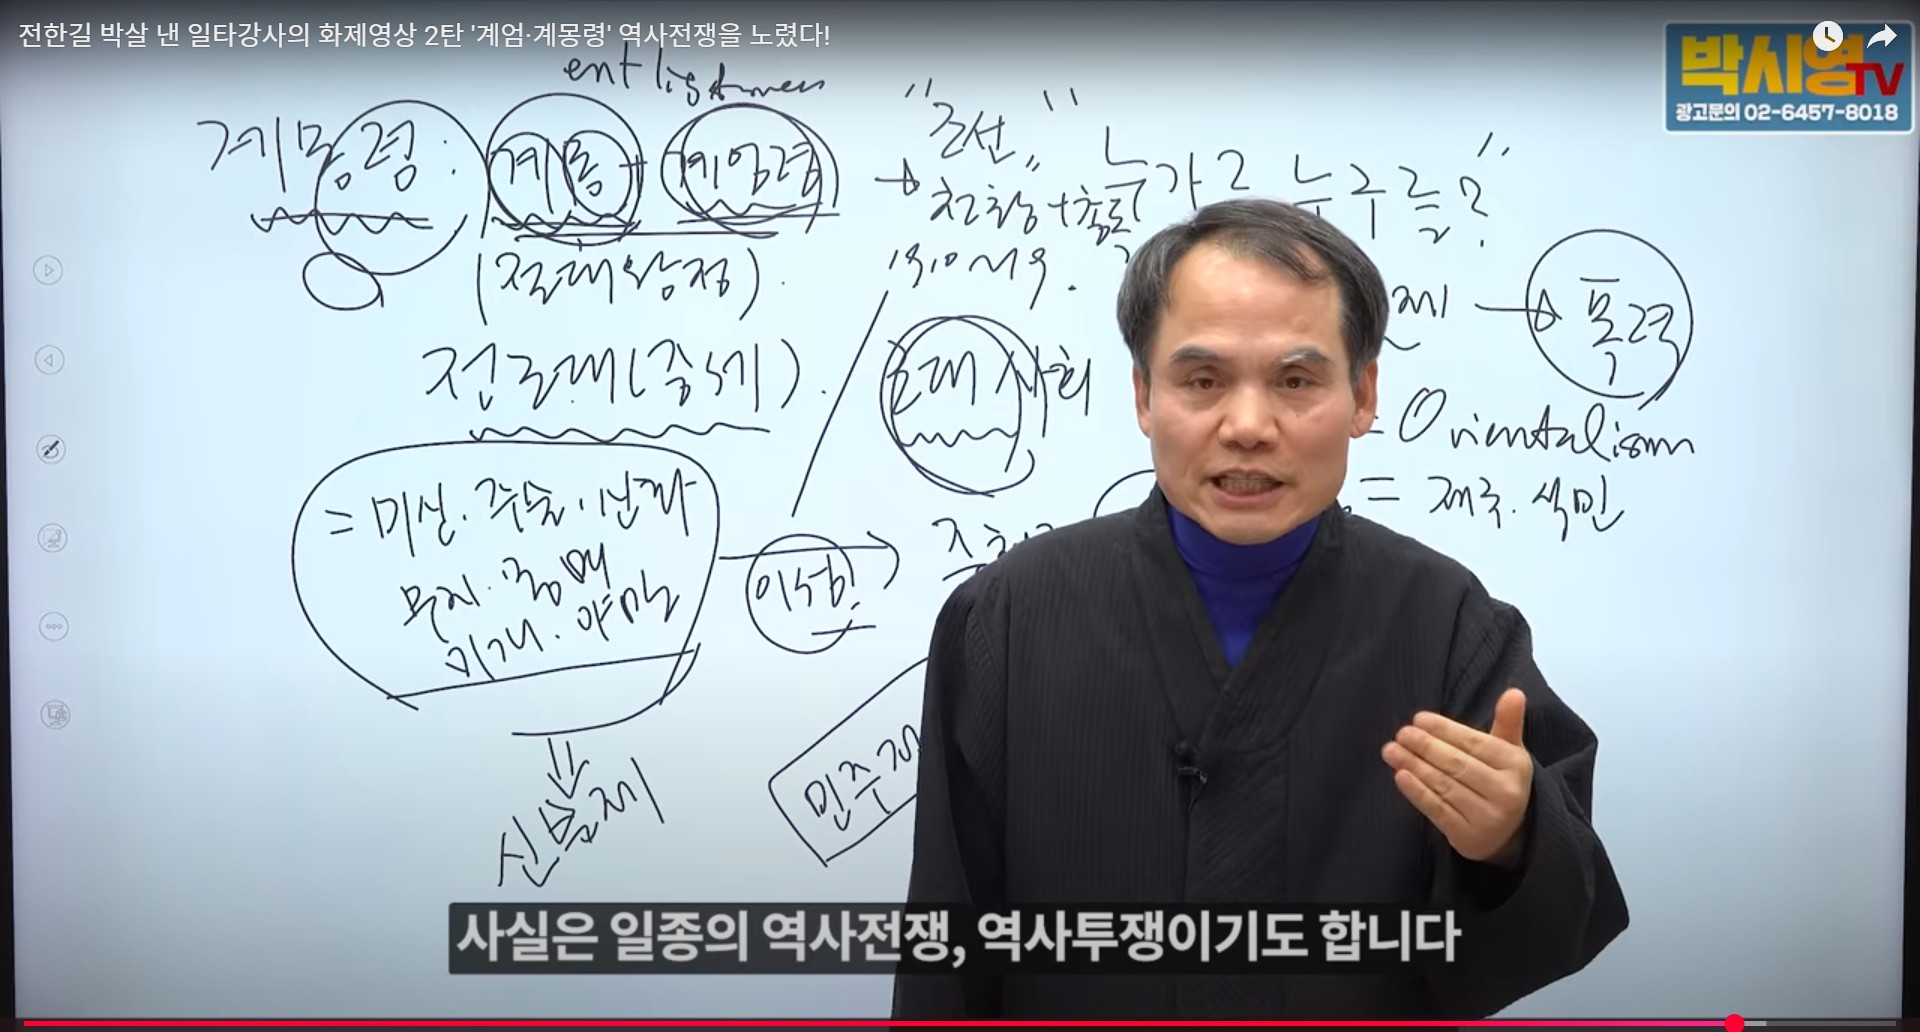 전한길 박살 낸 일타강사의 화제영상 2탄 '계엄·계몽령' 역사전쟁을 노렸다!
박시영TV
광고문의 02-6457-8018
계몽령: 계몽 + 계엄령
(절대왕정).
전근대(중세).
= 미신. 주술.
무지. 몽매
미개. 야만
신분제
이성
"조선"
누가 누구를?"
근대사회
폭력
= Orientalism
= 제국. 식민
민주
사실은 일종의 역사전쟁, 역사투쟁이기도 합니다